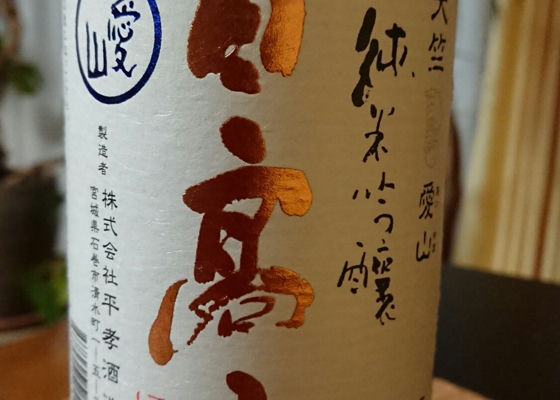 天竺
愛山
純米吟醸
日高
愛山
製造者
株式会社平孝酒
宮城県石巻市清水町一—五—